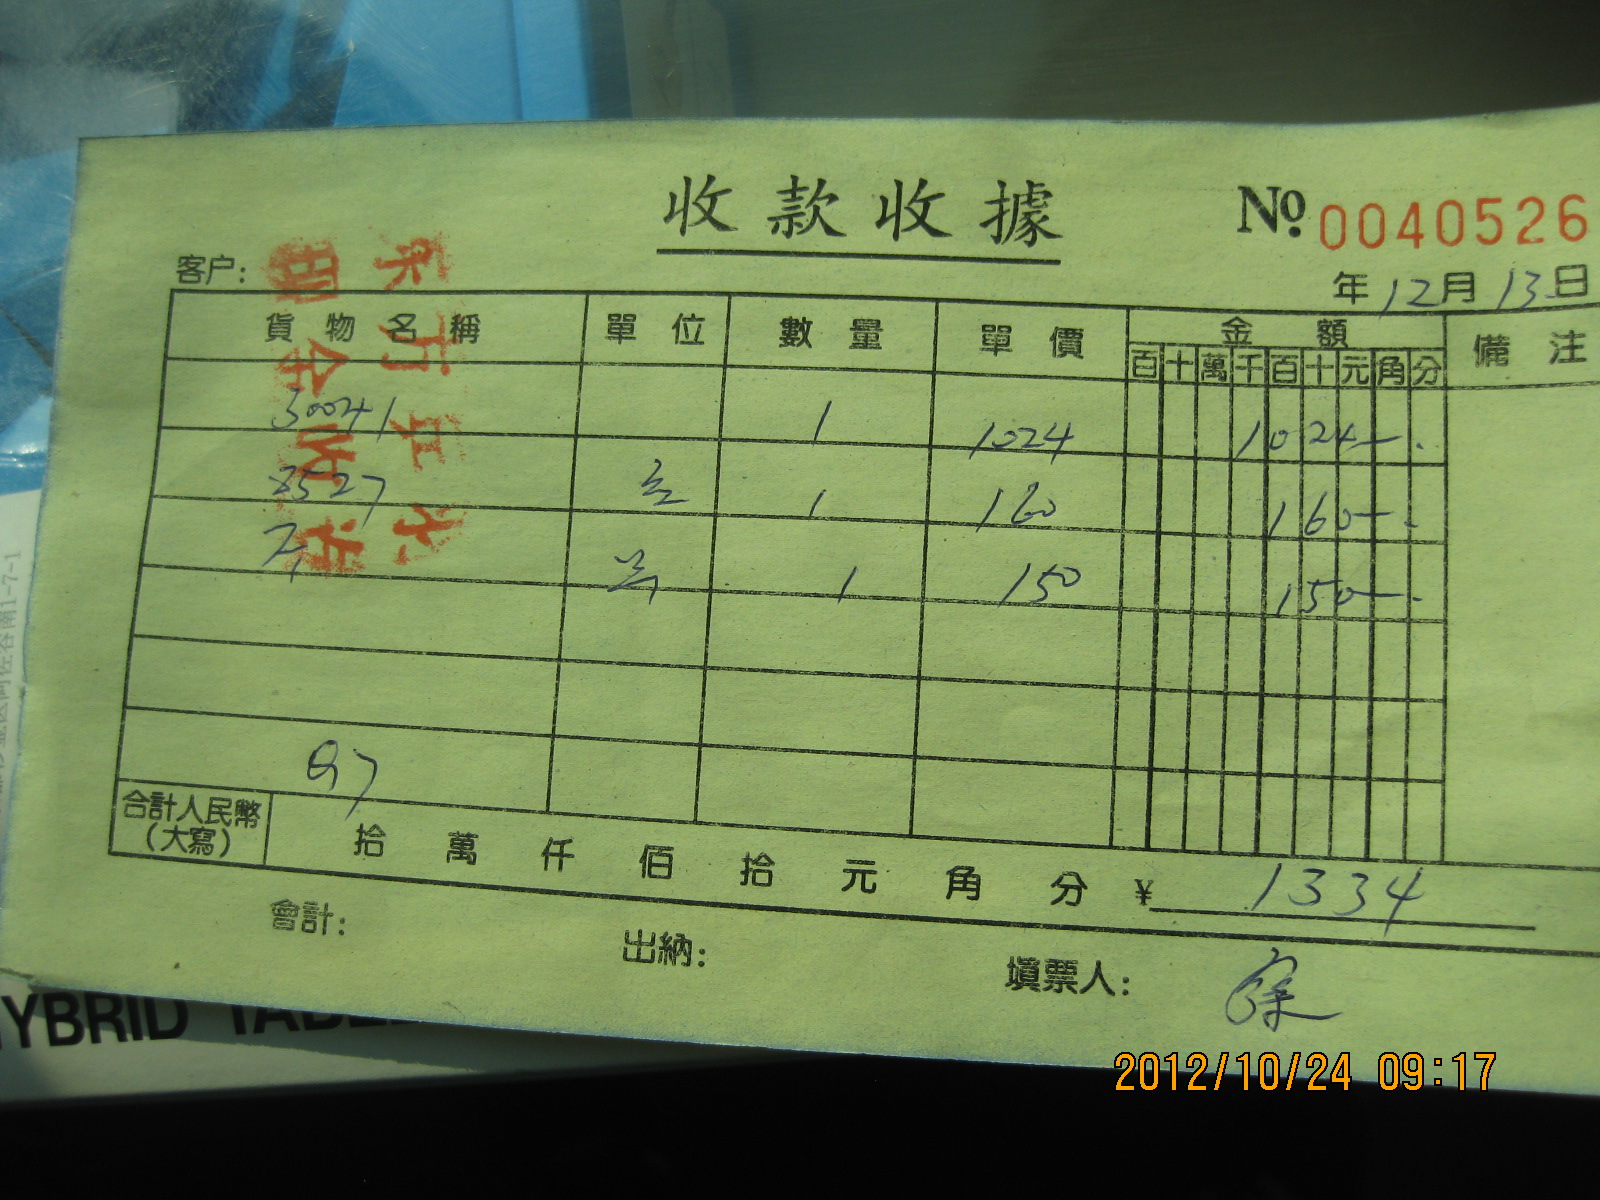 收款收據
No. 0040526
客户:
年 12 月 13 日
貨物名稱 單位 數量 單價 金額 備注
百 十 萬 千 百 十 元 角 分
30041 1 1024 1024—.
8527 1 160 160—.
1 150 150—.
合計人民幣
(大寫) 拾 萬 仟 佰 拾 元 角 分 ¥ 1334
會計: 出納: 填票人:
HYBRID
2012/10/24 09:17